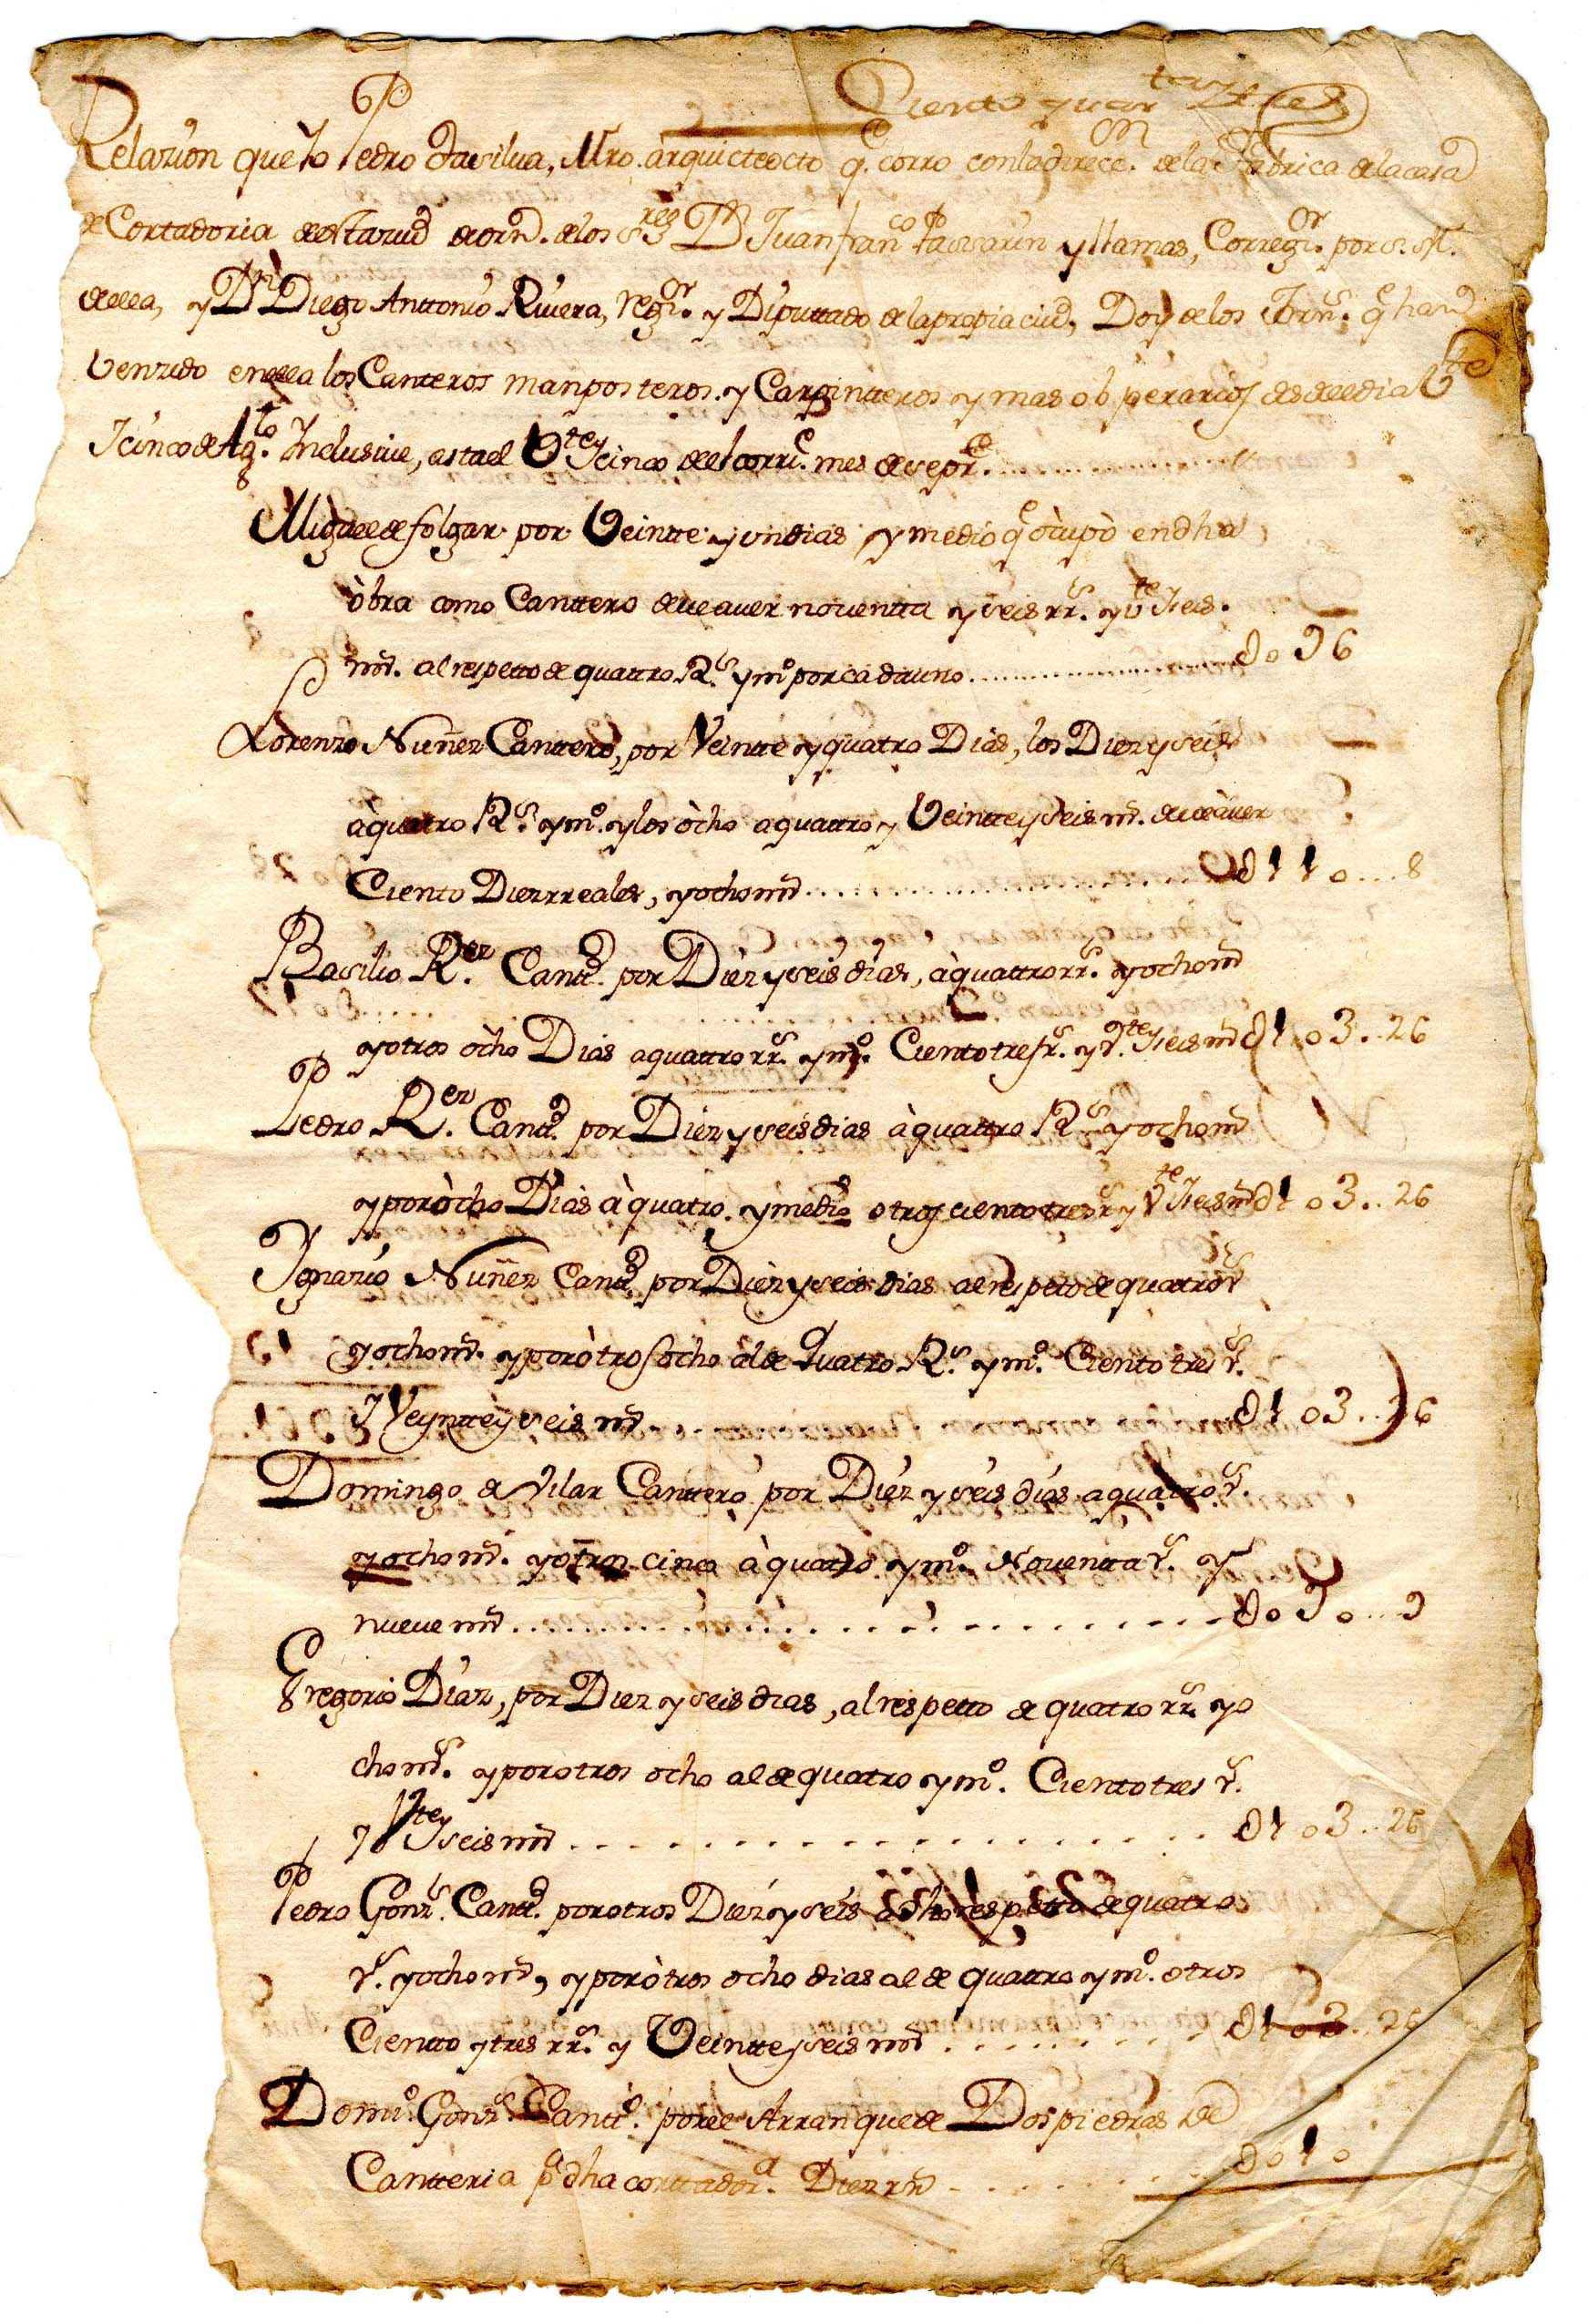 Ciento y uar^ta
Relazion que Yo Pedro da silua, Mro. arquicteocto q^e. corro con la direcc^on. de la Fabrica de la casa
de Cortadoria de esta ziud de orn. de los s^res Dn Juan fran^co Passarin y llamas, Correg^or. por s. M.
de ella, y Dn Diego Anttonio Riuera, reg^or. y Diputtado de la propia ciud, Doy de los Jorn^s. q^e han
Venzido en ella los Canteros manposteros. y Carpintteros y mas obperarios desde el dia V^te
Y cinco de Ag^to. Inclusiue, asta el V^te y cinco del corr^e. mes de sep^re.
Miguel de folgar por Veintte y un dias y medio q^e òcupò en dha
òbra como Canttero deue auer nouentta y seis rr^s. y v^te y seis.
mrd. al respetto de quattro R^s y m^o por cada uno ........ do 96
Lorenzo Nuñez Canttero, por Veintte y quatro Dias, los Diez y seis
à quatro R^s. y m^o. y los òcho a quattro y Veintte y seis mrd. deue àuer
Ciento Diez rreales, y ocho mrd ........ d110...8
Basilio R^ez. Cantt^o. por Diez y seis dias, à quattro rr^s. y ocho mrd
y otros òcho Dias a quattro rr^s. y m^o. Ciento tres r^s. y v^te y seis mrd d103..26
Pedro R^ez. Cantt^o. por Diez y seis dias à quattro R^s y ocho mrd
y por òcho Dias à quatro. y medio otros ciento tres r^s y v^te y seis mrd d103..26
Ygnazio Nuñez Cantt^o por Diez y seis dias al respeto de quatro r^s
y ocho mrd. y por òtros ocho al de quatro R^s y m^o. Ciento tres r^s.
Y Veyntte y seis mrd ........ d103..26
Domingo de Vilar Canttero por Diez y seis dias a quatro r^s.
y ocho mrd. y otros cinco à quatro y m^o. Nouentta r^s. y
nueue mrd ........ do90...9
Gregorio Diaz, por Diez y seis dias, al respetto de quatro rr^s. y o
cho mrd^s. y por otros ocho al de quatro y m^o. Ciento tres r^s.
y V^te y seis mrd ........ d103..26
Pedro Gonz^s. Cantt^o. por otros Diez y seis a dho respetto de quatro
r^s. y ocho mrd, y por òtros ocho dias al de quattro y m^o. otros
Ciento y tres rr^s. y Veintte y seis mrd ........ d103..26
Dom^o. Gonz^s. Cantt^o. por el Arranque de Dos piedras de
Cantteria p^a dha corttador^a. Diez rrs ........ do10